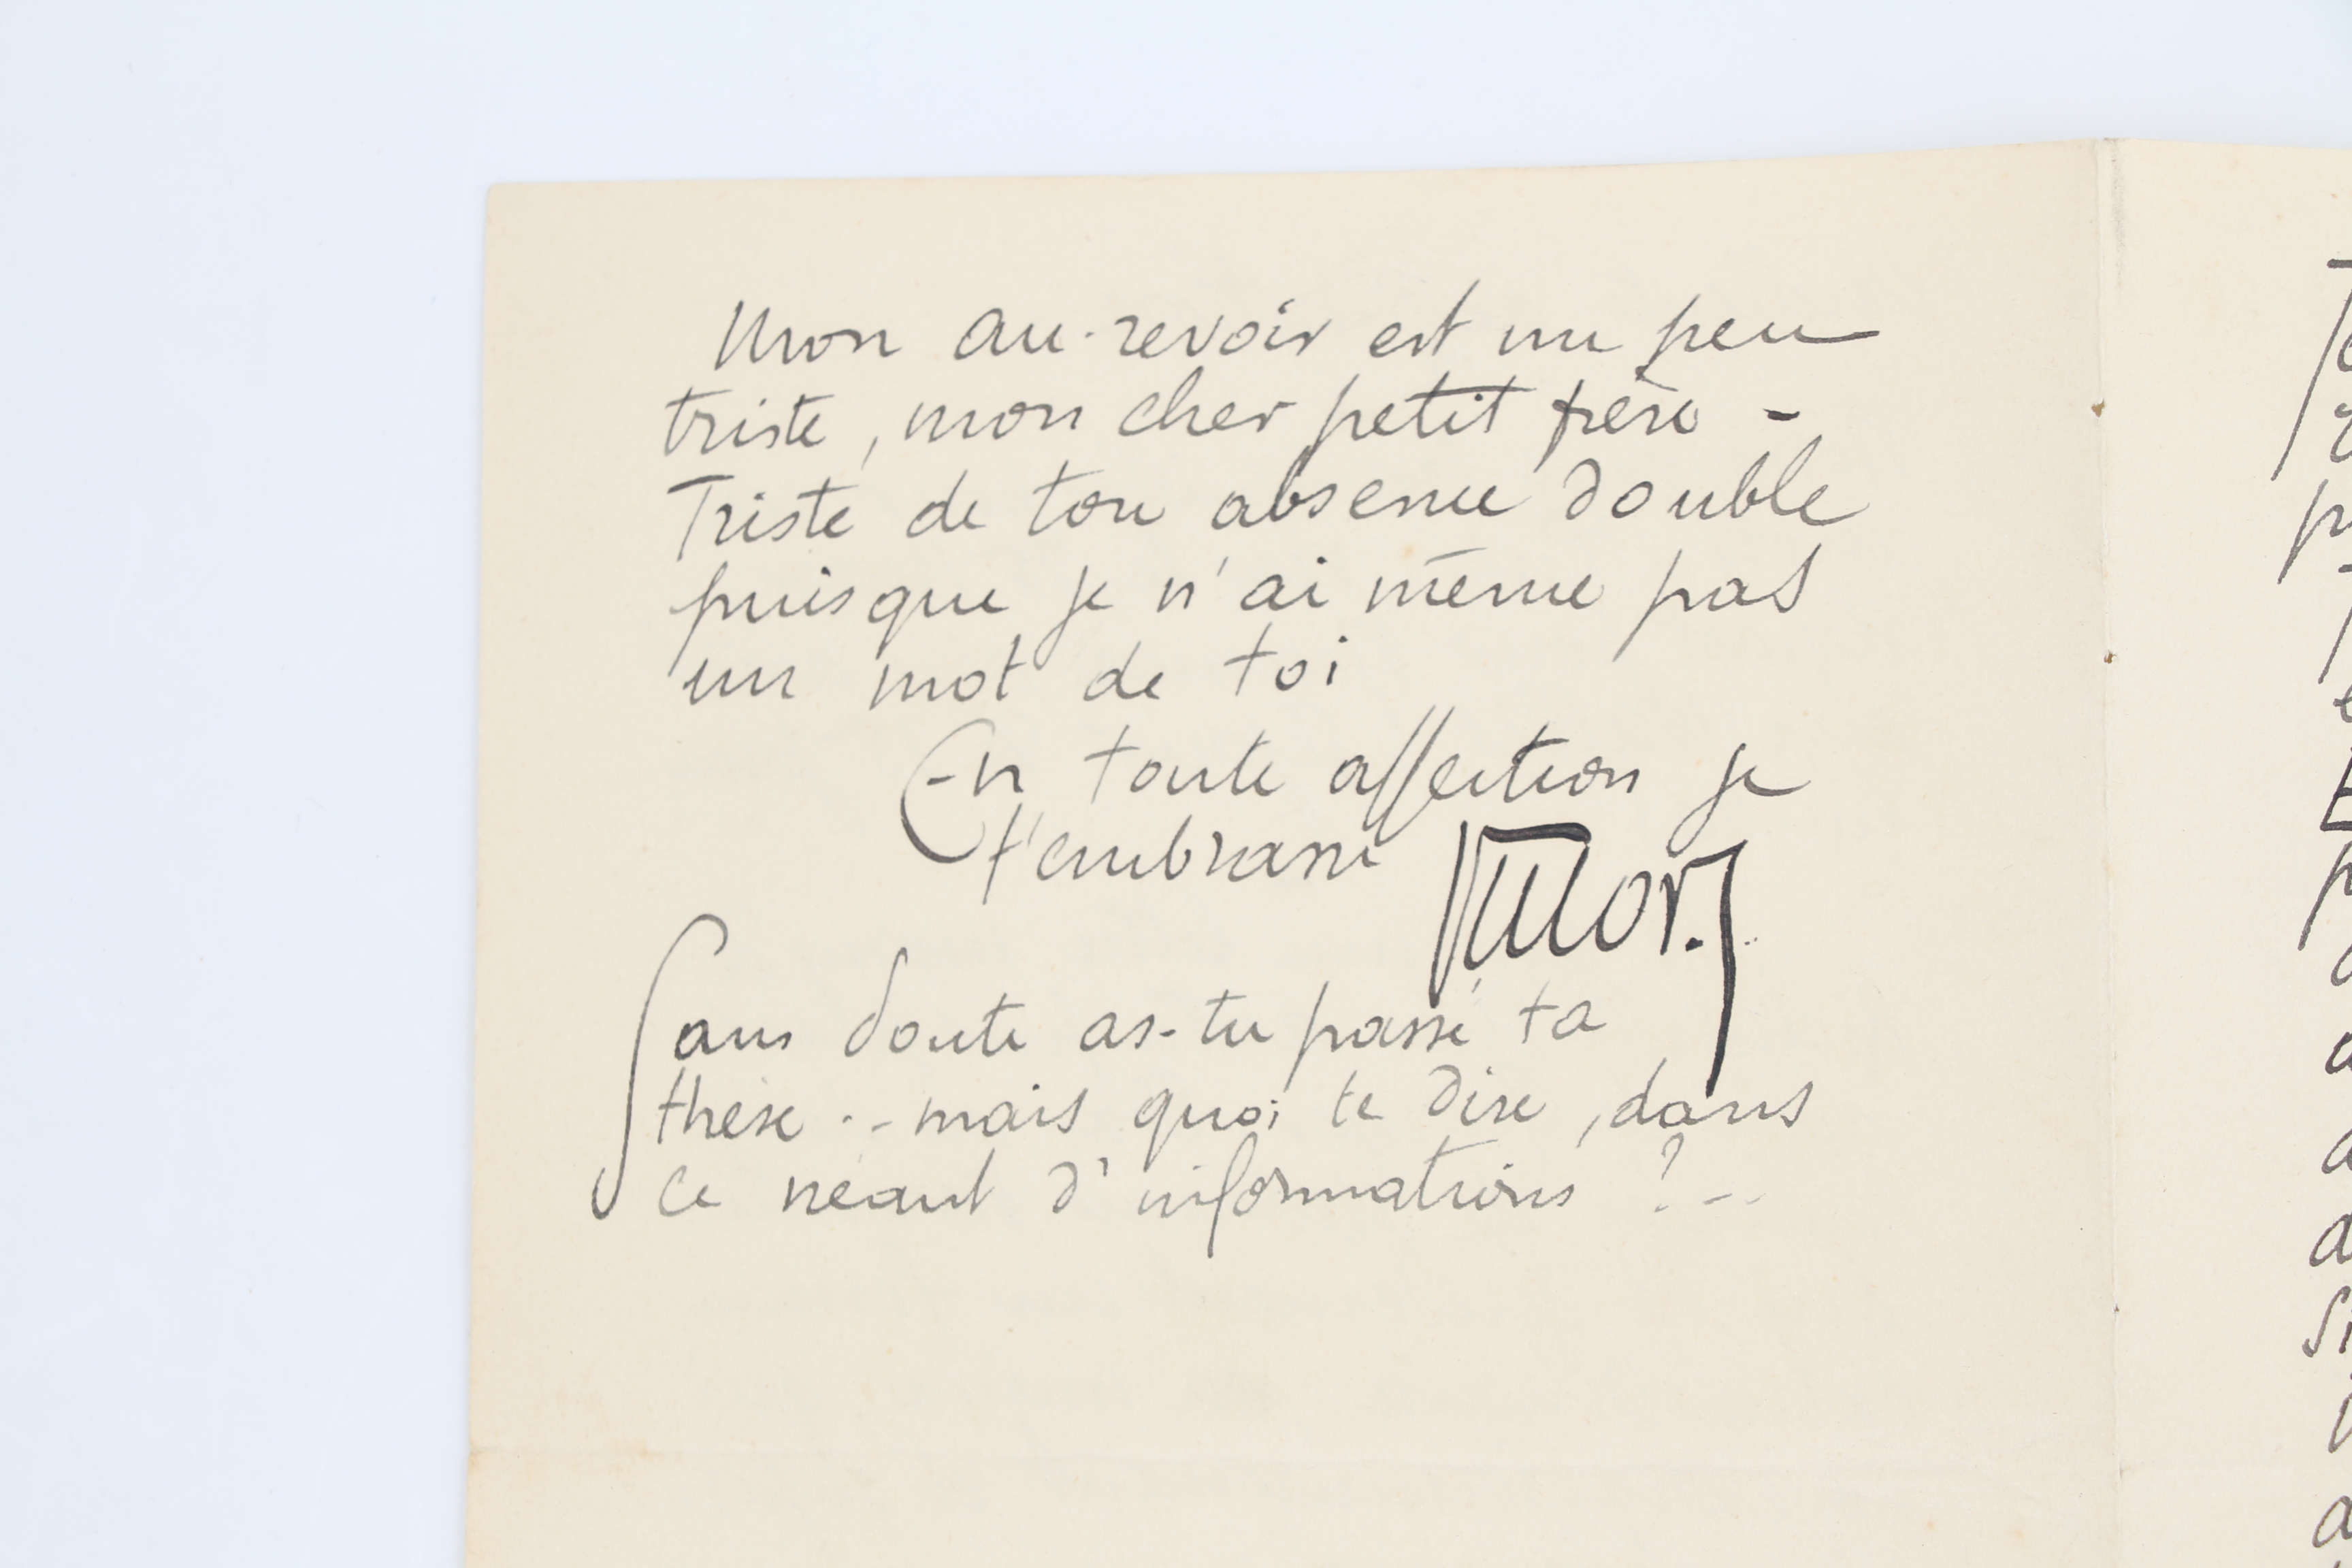 Mon au-revoir est un peu
triste, mon cher petit frère -
Triste de ton absence double
puisque je n'ai même pas
un mot de toi
En toute affection je
t'embrasse
Victor.
Sans doute as-tu passé ta
thèse .. mais quoi te dire, dans
ce néant d'informations ? --